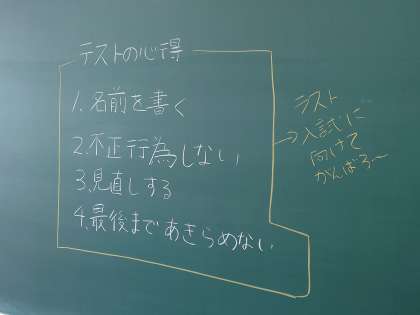 テストの心得
1.名前を書く
2.不正行為しない
3.見直しする
4.最後まであきらめない
→入試に
向けて
がんばろ〜